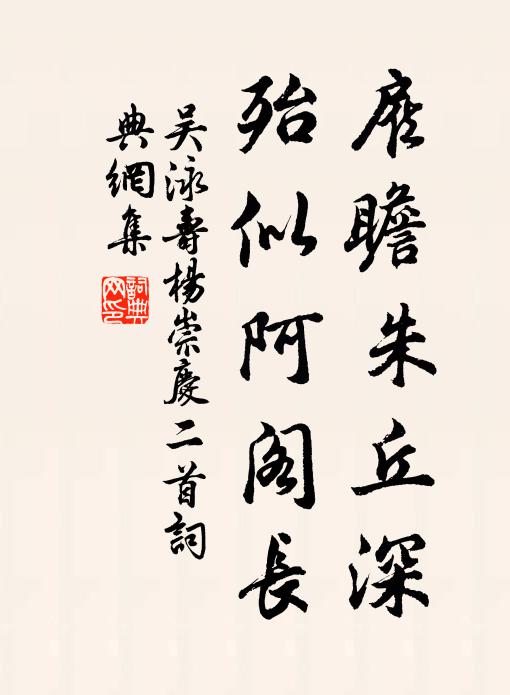 瞻朱丘深
殆似阿阁長
吴泳壽楊崇慶二首詞
典網集
詞典
网印